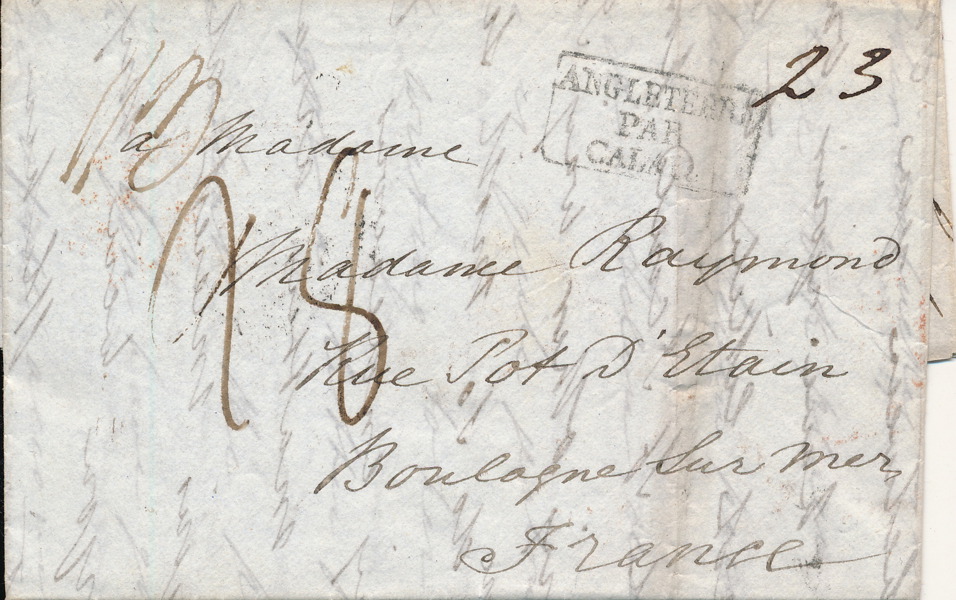 23
ANGLETERRE
PAR
CALAIS
a Madame
Madame Raymond
Rue Pot D'Etain
Boulogne Sur Mer
France